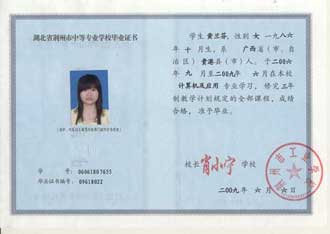 湖北省荆州市中等专业学校毕业证书
学号 06061807655
毕业证书编号: 09618022
学生 黄兰芬, 性别 女 一九八六
年 十 月生, 系 广西省(市、自
治区) 贵港县(市)人。于二00六
年 九 月至二00九年 六 月在本校
计算机及应用 专业学习, 修完三年
制教学计划规定的全部课程, 成绩
合格, 准予毕业。
校长 肖小宁 学校
二00九年 六 月 六 日